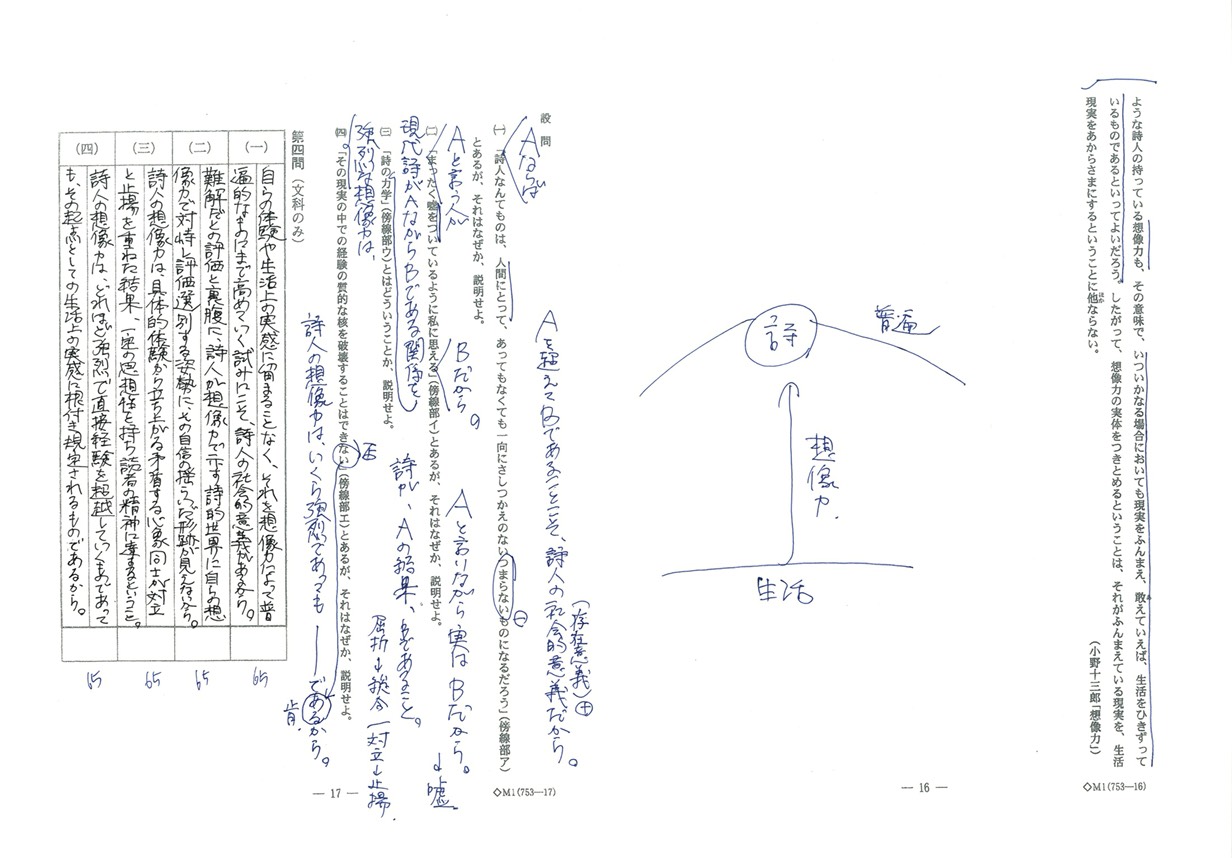 ような詩人の持っている想像力も、その意味で、いついかなる場合においても現実をふんまえ、敢えていえば、生活をひきずって
いるものであるといってよいだろう。したがって、想像力の実体をつきとめるということは、それがふんまえている現実を、生活
現実をあからさまにするということに他ならない。
ほか
(小野十三郎「想像力」)
普遍
詩
想像力
生活
— 16 —
◇M1(753—16)
設問
Aならば
Aを超えてBであることこそ、詩人の社会的意義だから。
(存在意義)⊕
㈠ 「詩人なんてものは、人間にとって、あってもなくても一向にさしつかえのないつまらないものになるだろう」(傍線部ア)
とあるが、それはなぜか、説明せよ。
⊖
Aと言う人が
Bだから。
Aと言いながら実はBだから。
→嘘
㈡ 「まったく嘘をついているように私に思える」(傍線部イ)とあるが、それはなぜか、説明せよ。
現代詩がAながらBである関係を
詩が、Aの結果、Bであること。
㈢ 「詩の力学」(傍線部ウ)とはどういうことか、説明せよ。
屈折→総合
対立→止揚
強烈な想像力は、
㈣ 「その現実の中での経験の質的な核を破壊することはできない」(傍線部エ)とあるが、それはなぜか、説明せよ。
否
詩人の想像力は、いくら強烈であっても——であるから。
肯
第四問 (文科のみ)
(一)
自らの体験や生活上の実感に留まることなく、それを想像力によって普
遍的なものにまで高めていく試みにこそ、詩人の社会的意義があるから。
65
(二)
難解などの評価と裏腹に、詩人が想像力で示す詩的世界に自らの想
像力で対峙し評価選別する姿勢に、その自信の揺らいだ形跡が見えないから。
65
(三)
詩人の想像力は、具体的体験から立ち上がる矛盾する心象同士が対立
と止揚を重ねた結果、一定の思想性を持ち読者の精神に達するということ。
65
(四)
詩人の想像力は、どれほど強烈で直接経験を超越していくものであって
も、その起点としての生活上の実感に根付き規定されるものであるから。
65
— 17 —
◇M1(753—17)